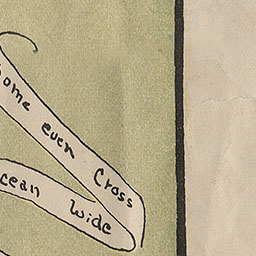 ome even Cross
cean Wide